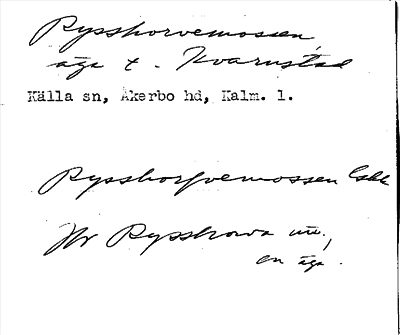 Rysshorvemossen,
äga t. Kvarnstad
Källa sn, Åkerbo hd, Kalm. l.
Rysshorfvemossen
Hr Rysshorva
en äga.